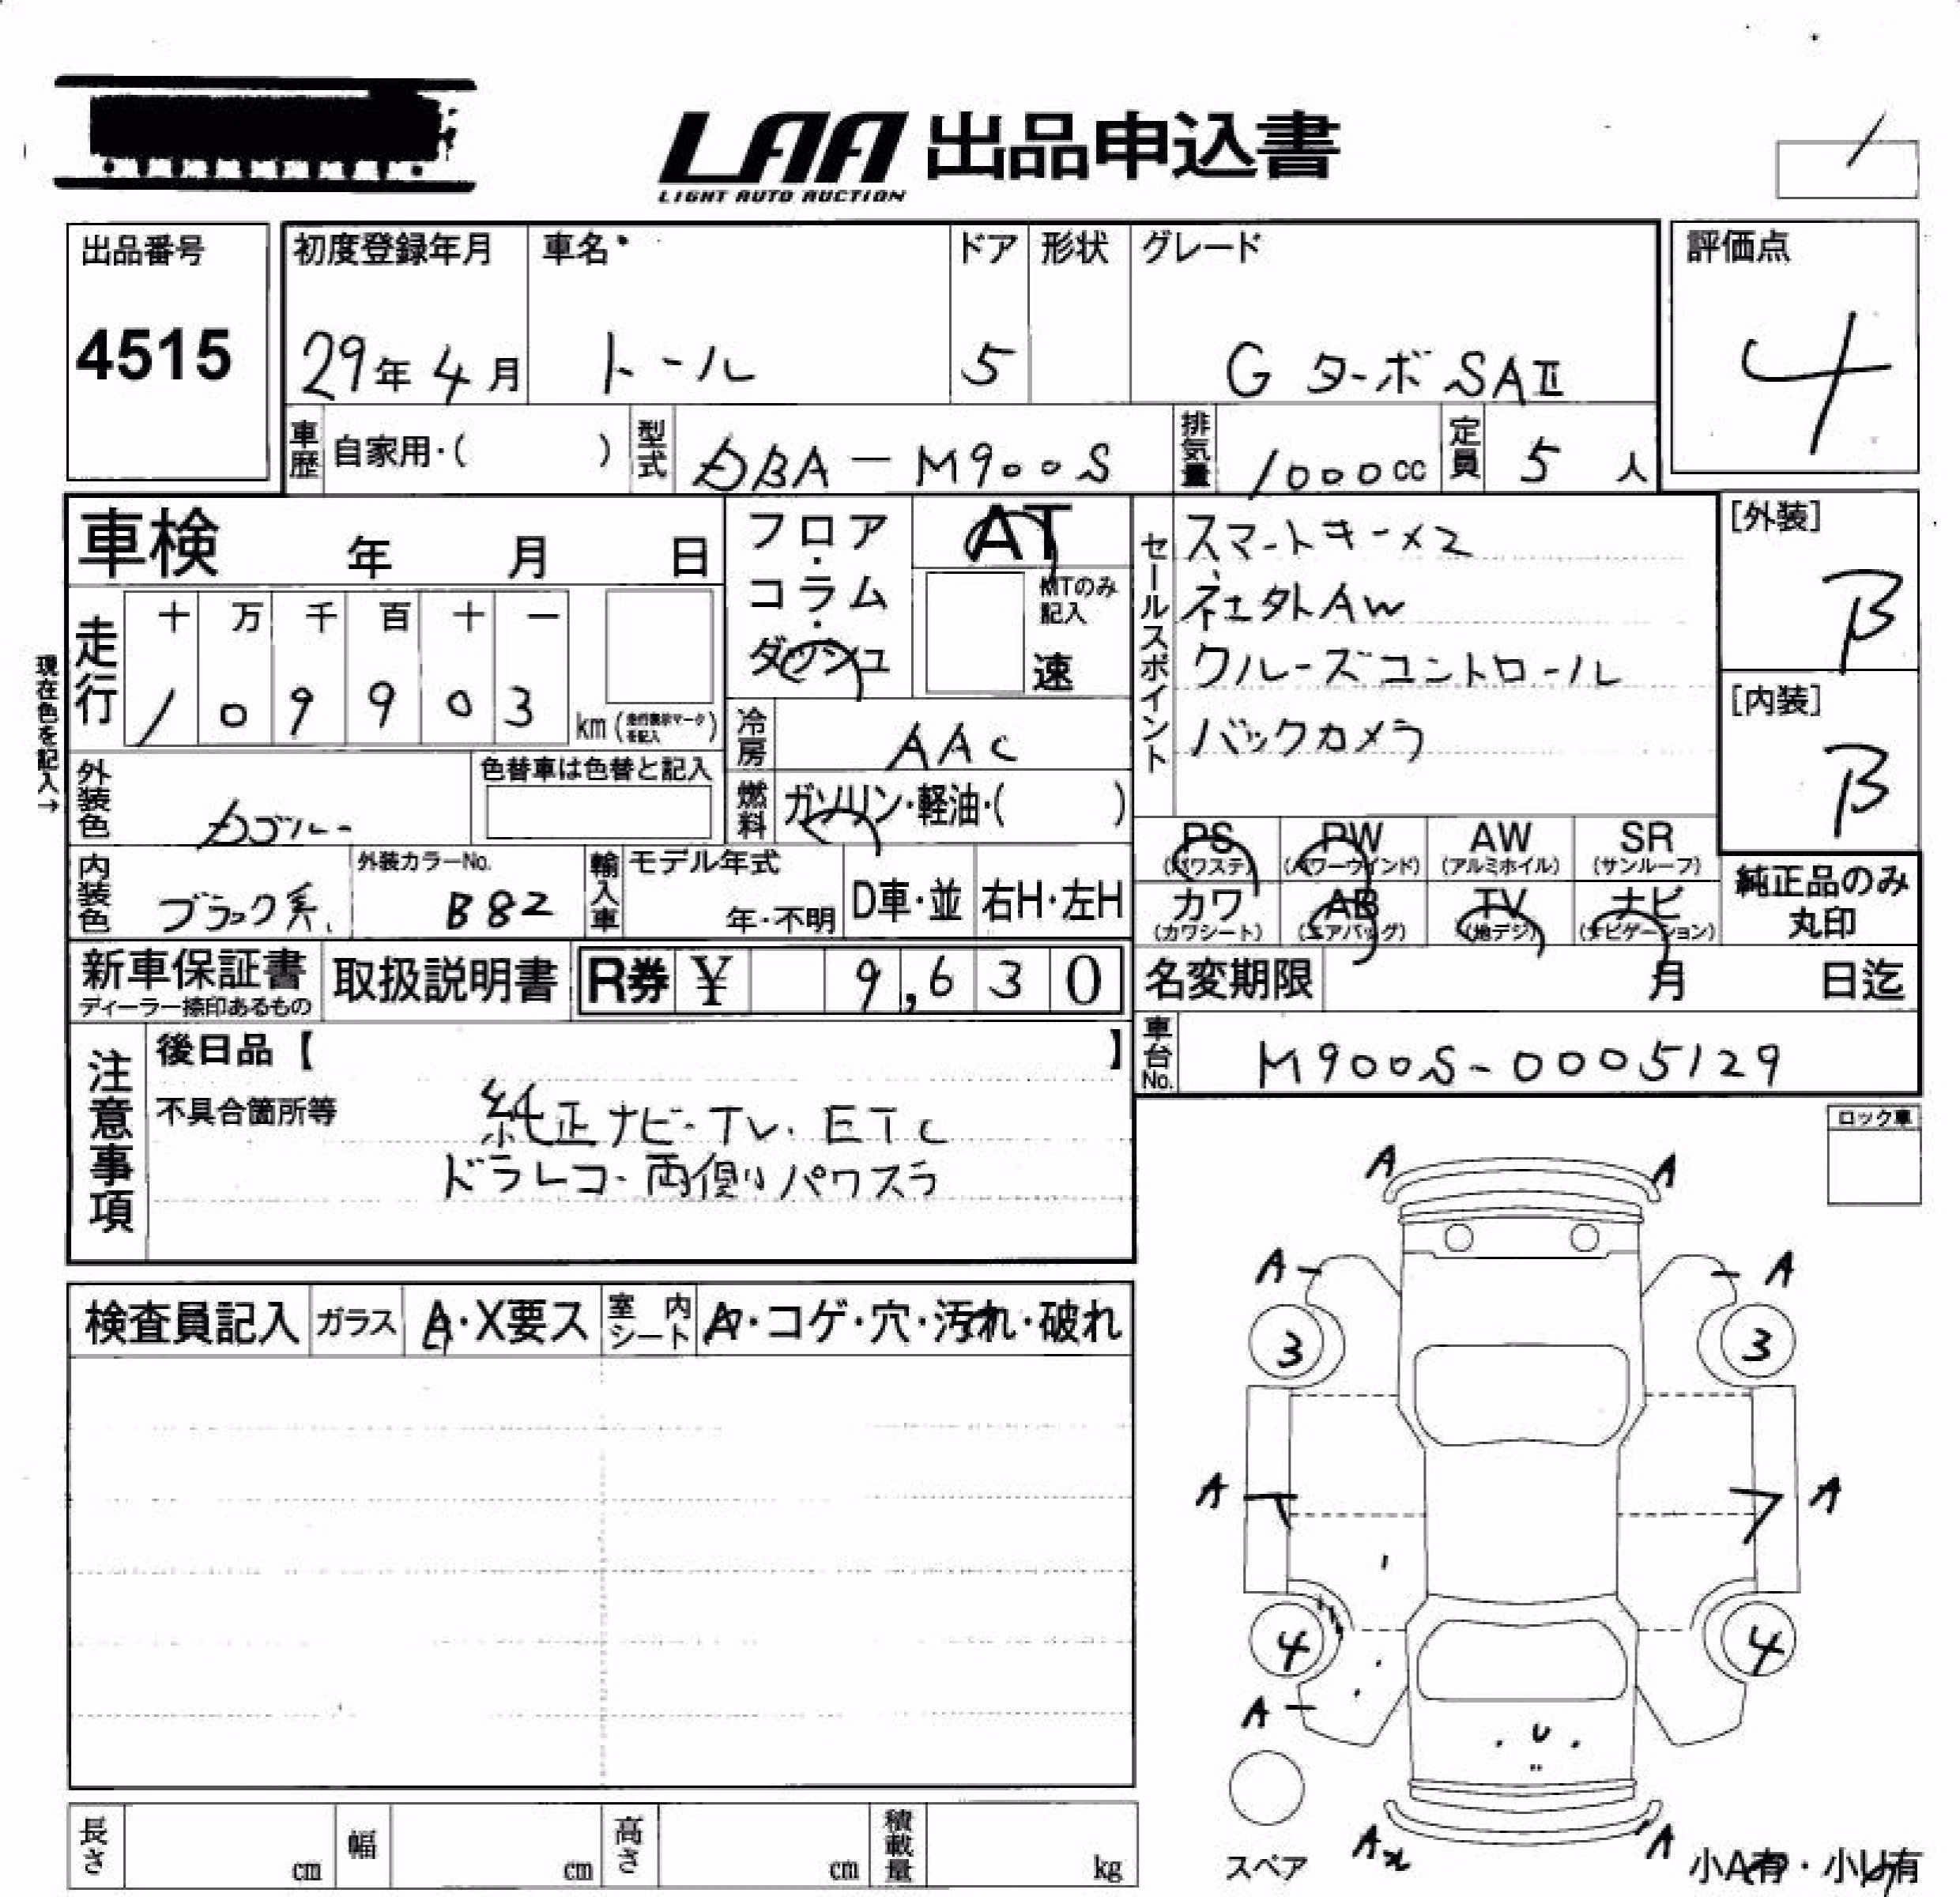 LAA 出品申込書
LIGHT AUTO AUCTION
出品番号
4515
初度登録年月
29年 4月
車名
トール
ドア
5
形状
グレード
G ターボ SAⅡ
評価点
4
車歴
自家用・( )
型式
DBA-M900S
排気量
1000cc
定員
5 人
車検 年 月 日
フロア・コラム・ダッシュ
AT
MTのみ記入
速
セールスポイント
スマートキー×2
社外AW
クルーズコントロール
バックカメラ
[外装]
B
[内装]
B
現在色を記入→
走行
十 万 千 百 十 一
1 0 9 9 0 3
km (走行表示マークを記入)
冷房
AAC
燃料
ガソリン・軽油・( )
外装色
色替車は色替と記入
内装色
ブラック系
外装カラーNo.
B82
輸入車
モデル年式
年・不明
D車・並
右H・左H
PS (パワステ)
PW (パワーウインド)
AW (アルミホイル)
SR (サンルーフ)
カワ (カワシート)
AB (エアバッグ)
TV (地デジ)
ナビ (ナビゲーション)
純正品のみ丸印
新車保証書
ディーラー捺印あるもの
取扱説明書
R券 ¥ 9,630
名変期限 月 日迄
車台No.
M900S-0005129
注意事項
後日品【 】
不具合箇所等
純正ナビ・TV・ETC
ドラレコ・両側パワスラ
ロック車
検査員記入
ガラス
A・X要ス
室内シート
ヤ・コゲ・穴・汚れ・破れ
A A
A A
3 3
A A
4 4
A
U
A A
スペア
小A有・小U有
長さ cm
幅 cm
高さ cm
積載量 kg